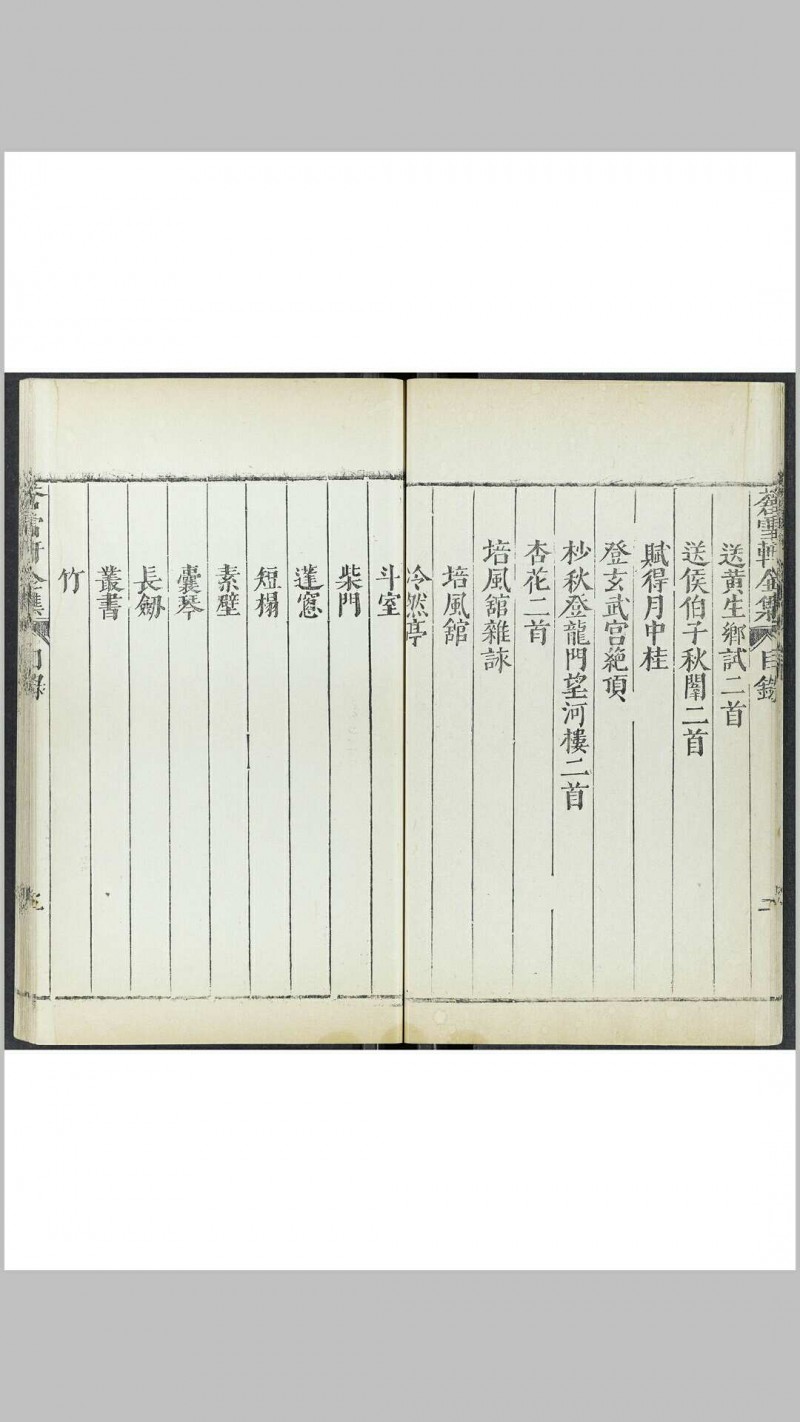 蒼雪軒全集 目錄
送黃生鄉試二首
送侯伯子秋闈二首
賦得月中桂
登玄武宫絶頂
杪秋登龍門望河樓二首
杏花二首
培風舘雜詠
培風舘
冷然亭
斗室
柴門
蓬窻
短榻
素壁
囊琴
長劒
叢書
竹